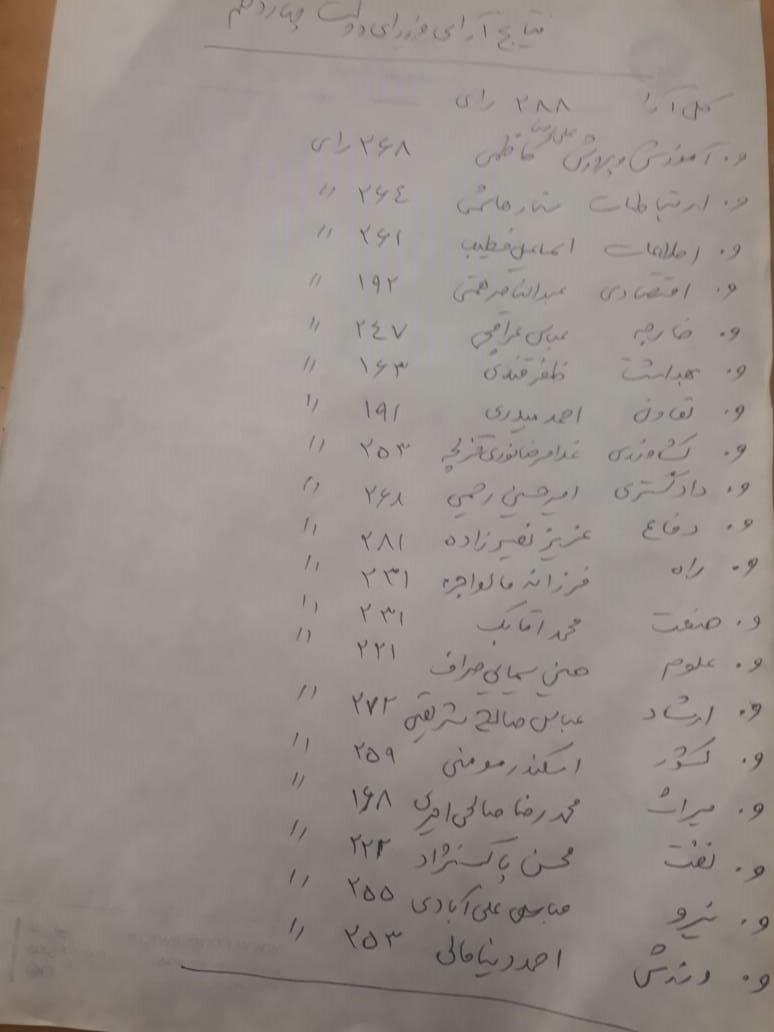 نتایج آرای وزرای دولت چهاردهم
کل آرا ۲۸۸ رای
و. آموزش و پرورش علیرضا کاظمی ۲۶۸ رای
و. ارتباطات ستار هاشمی ۲۶۴ //
و. اطلاعات اسماعیل خطیب ۲۶۱ //
و. اقتصادی عبدالناصر همتی ۱۹۲ //
و. خارجه عباس عراقچی ۲۴۷ //
و. بهداشت ظفرقندی ۱۶۳ //
و. تعاون احمد میدری ۱۹۱ //
و. کشاورزی غلامرضا نوری قزلجه ۲۵۳ //
و. دادگستری امیرحسین رحیمی ۲۶۸ //
و. دفاع عزیز نصیرزاده ۲۸۱ //
و. راه فرزانه ۲۳۱ //
و. صنعت محمد اتابک ۲۳۱ //
و. علوم حسین سیمایی صراف ۲۲۱ //
و. ارشاد عباس صالح شریعتی ۲۷۲ //
و. کشور اسکندر مومنی ۲۵۹ //
و. میراث محمدرضا صالحی امیری ۱۶۸ //
و. نفت محسن پاکنژاد ۲۲۲ //
و. نیرو عباس علی آبادی ۲۵۵ //
و. ورزش احمد دنیامالی ۲۵۳ //